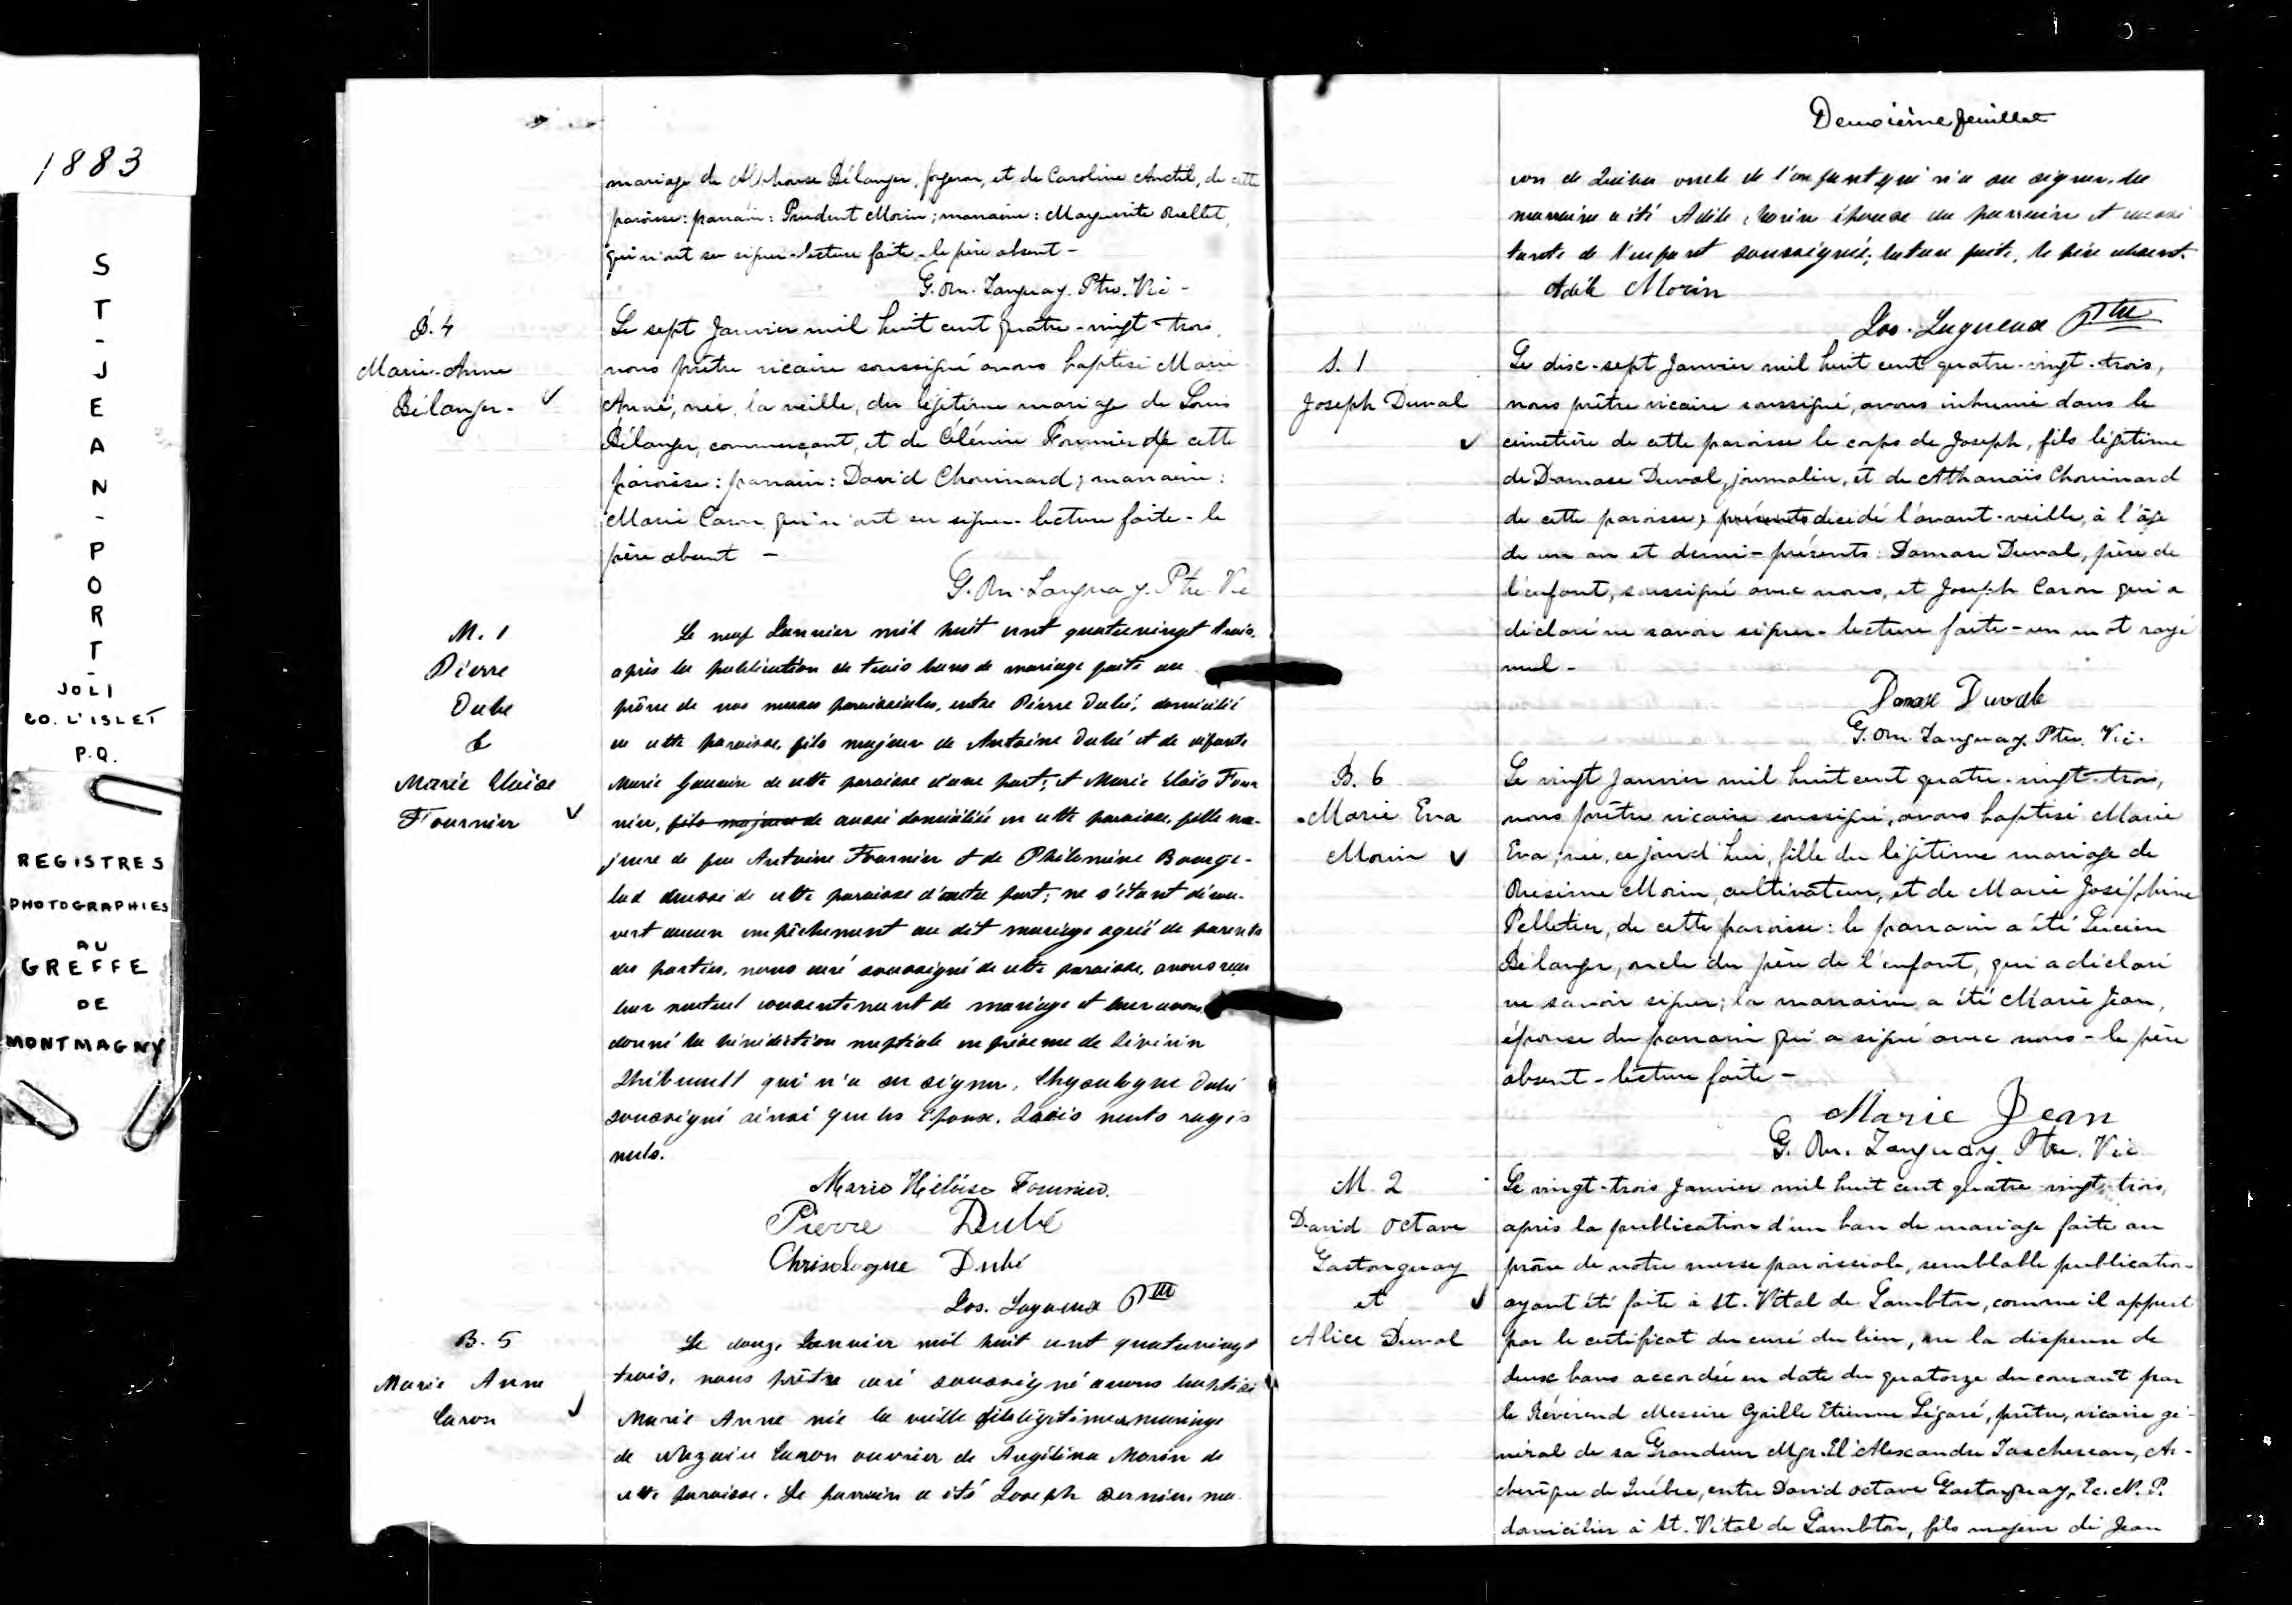 1883
ST-JEAN-PORT-
JOLI
CO. L'ISLET
P.Q.
REGISTRES
PHOTOGRAPHIES
AU
GREFFE
DE
MONTMAGNY
mariage de Alphonse Bélanger, forgeron, et de Caroline Anctil, de cette
paroisse: parrain: Prudent Morin; marraine: Marguerite Ouellet,
qui n'ont su signer - lecture faite - le père absent -
G. Au. Tanguay. Ptre. Vic -
B. 4
Marie-Anne
Bélanger -
Le sept Janvier mil huit cent quatre-vingt-trois,
nous prêtre vicaire soussigné avons baptisé Marie
Anne, née, la veille, du légitime mariage de Louis
Bélanger, commerçant, et de Célénire Fournier de cette
paroisse: parrain: David Chouinard; marraine:
Marie Caron qui n'ont su signer - lecture faite - le
père absent -
G. Au. Tanguay. Ptre. Vic
M. 1
Pierre
Dubé
&
Marie Eloise
Fournier
Le neuf Janvier mil huit cent quatrevingt trois,
après la publication de trois bans de mariage faite au
prône de nos messes paroissiales, entre Pierre Dubé, domicilié
en cette paroisse, fils majeur de Antoine Dubé et de défunte
Marie de cette paroisse d'une part; et Marie Elois Four
nier, fils majeur de aussi domiciliée en cette paroisse, fille ma-
jeure de feu Antoine Fournier et de Philomène Bourge-
lad aussi de cette paroisse d'autre part; ne s'étant décou-
vert aucun empêchement au dit mariage agréé de parents
des parties, nous curé soussigné de cette paroisse, avons reçu
leur mutuel consentement de mariage et leur avons
donné la bénédiction nuptiale en présence de Sévérin
Thibault qui n'a su signer, Chrysologue Dubé
soussigné ainsi que les époux. Trois mots rayés
nuls.
Marie Héloïse Fournier.
Pierre Dubé
Chrisologue Dubé
Jos. Lagueux Ptre
B. 5
Marie Anne
Caron
Le douze Janvier mil huit cent quatrevingt
trois, nous prêtre curé soussigné avons baptisé
Marie Anne née la veille fille légitime mariage
de Nazaire Caron ouvrier de Angélina Morin de
cette paroisse. Le parrain a été Joseph Bernier, ma
Deuxième feuillet
çon de Québec oncle de l'enfant qui n'a su signer, la
marraine a été Adèle Morin épouse du parrain et aussi
tante de l'enfant soussignée; lecture faite, le père absent.
Adèle Morin
Jos. Lagueux Ptre
S. 1
Joseph Duval
Le dix-sept Janvier mil huit cent quatre-vingt-trois,
nous prêtre vicaire soussigné, avons inhumé dans le
cimetière de cette paroisse le corps de Joseph, fils légitime
de Damase Duval, journalier, et de Athanaïs Chouinard
de cette paroisse; présents décédé l'avant-veille, à l'âge
de un an et demi - présents: Damase Duval, père de
l'enfant, soussigné avec nous, et Joseph Caron qui a
déclaré ne savoir signer - lecture faite - un mot rayé
nul -
Damase Duvale
G. Au. Tanguay. Ptre. Vic.
B. 6
Marie Eva
Morin
Le vingt Janvier mil huit cent quatre-vingt-trois,
nous prêtre vicaire soussigné, avons baptisé Marie
Eva, née, ce jourd'hui, fille du légitime mariage de
Onésime Morin, cultivateur, et de Marie Joséphine
Pelletier, de cette paroisse: le parrain a été Lucien
Bélanger, oncle du père de l'enfant, qui a déclaré
ne savoir signer; la marraine a été Marie Jean,
épouse du parrain qui a signé avec nous - le père
absent - lecture faite -
Marie Jean
G. Au. Tanguay. Ptre. Vic
M. 2
David Octave
Gastonguay
et
Alice Duval
Le vingt-trois Janvier mil huit cent quatre-vingt-trois,
après la publication d'un ban de mariage faite au
prône de notre messe paroissiale, semblable publication
ayant été faite à St. Vital de Lambton, comme il appert
par le certificat du curé du lieu, vu la dispense de
deux bans accordée en date du quatorze du courant par
le Révérend Messire Cyrille Etienne Légaré, prêtre, vicaire gé-
néral de sa Grandeur Mgr. El. Alexandre Taschereau, Ar-
chevêque de Québec, entre David Octave Gastonguay, Ec. N. P.
domicilié à St. Vital de Lambton, fils majeur de Jean